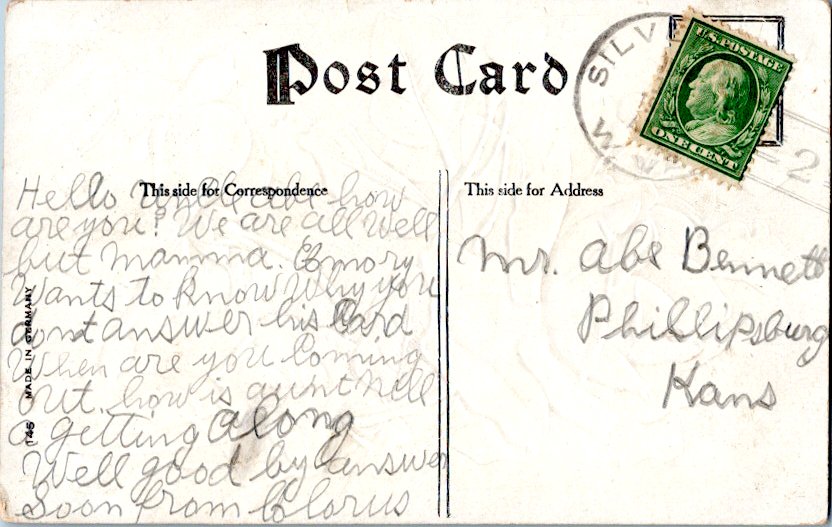 Post Card
SILV
U.S. POSTAGE
ONE CENT
2
This side for Correspondence
This side for Address
Hello Uncle abe how
are you? We are all well
but mamma. Emory
Wants to know why you
dont answer his Card
When are you Coming
out. how is aunt nell
a getting along
Well good by answer
Soon from Clorus
Mr. Abe Bennett
Phillipsburg
Kans
145 MADE IN GERMANY